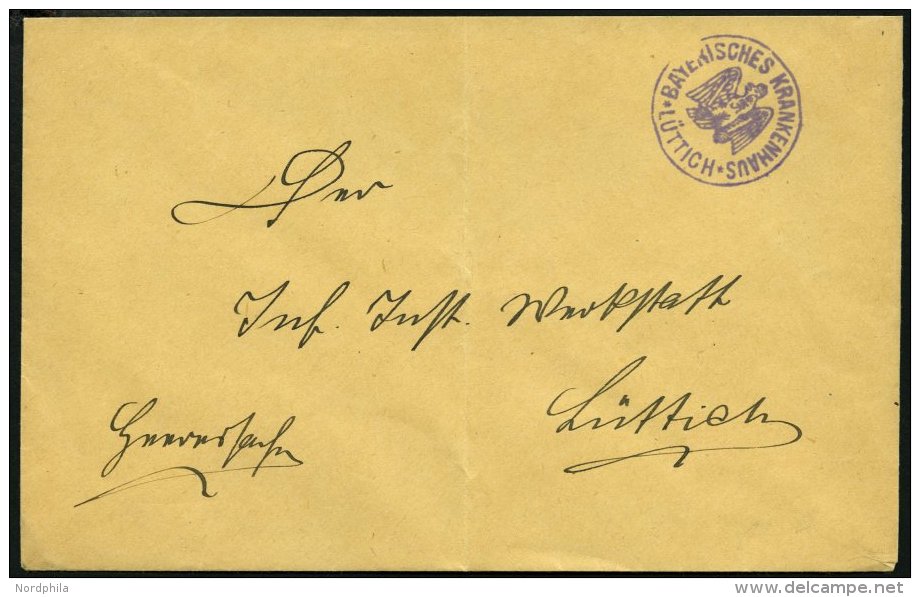 BAYERISCHES KRANKENHAUS * LÜTTICH *
Der
Inf. Inst. Werkstatt
Lüttich
Heeressache
Nordphila
delcampe.net